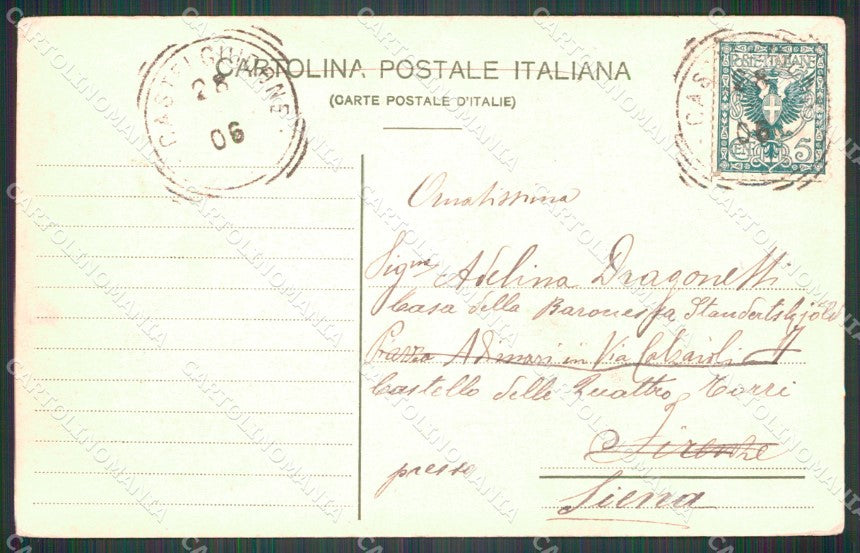 CARTOLINA POSTALE ITALIANA
(CARTE POSTALE D'ITALIE)
28
06
POSTE ITALIANE
CENT. 5
Ornatissima
Sigⁿᵃ Adelina Dragonetti
Casa della Baronessa Standertskjöld
Piazza Adimari in Via Calzaioli
Castello delle Quattro Torri
Firenze
presso
Siena
CARTOLINOMANIA